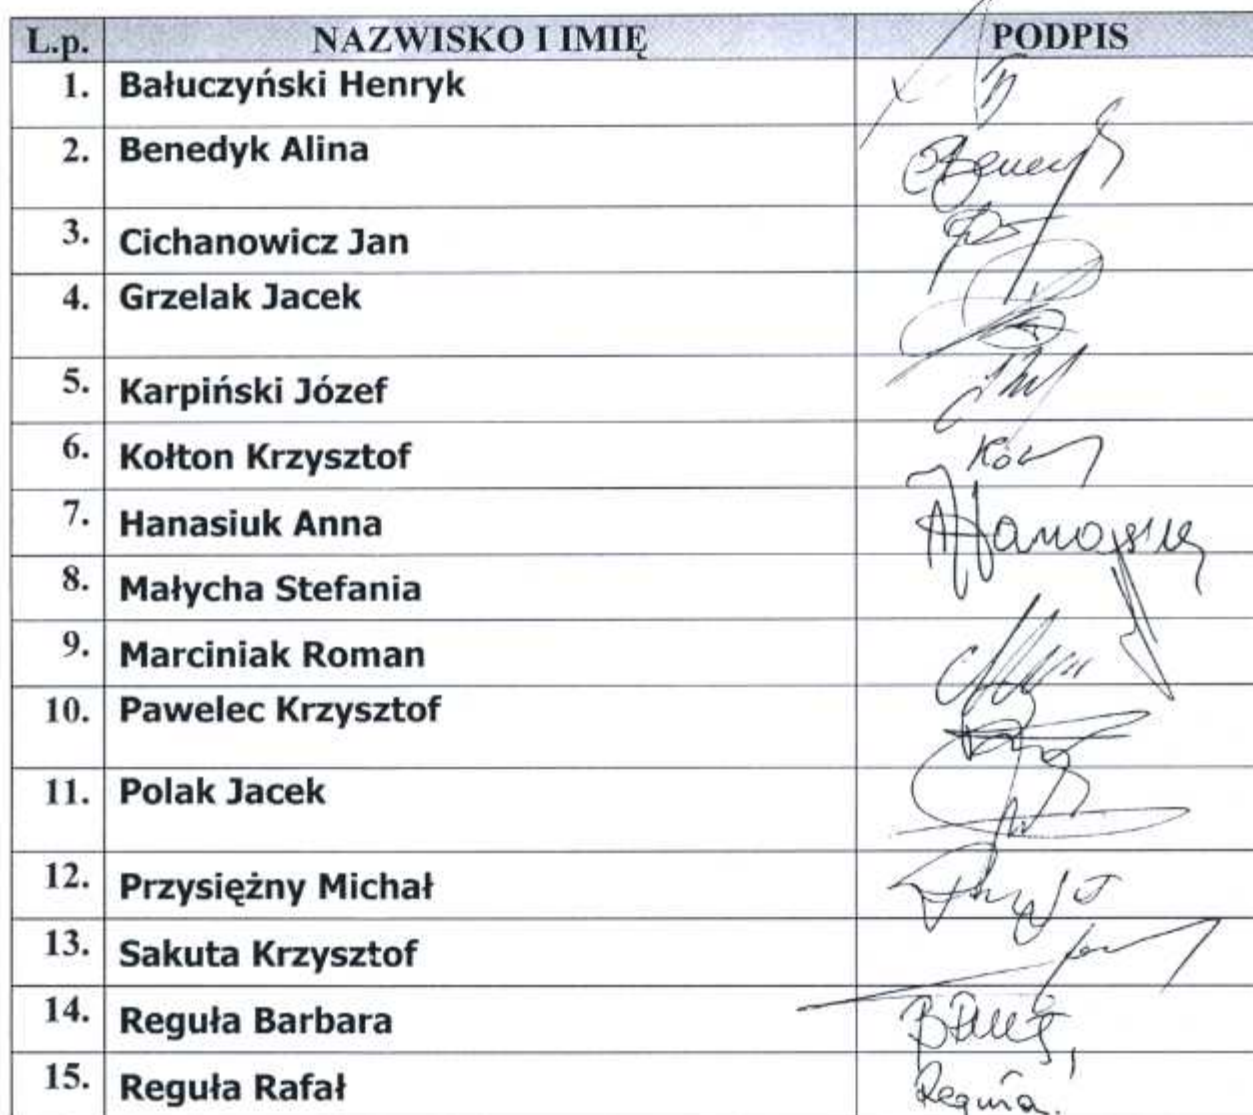 L.p. NAZWISKO I IMIĘ PODPIS
1. Bałuczyński Henryk
2. Benedyk Alina
3. Cichanowicz Jan
4. Grzelak Jacek
5. Karpiński Józef
6. Kołton Krzysztof
7. Hanasiuk Anna
8. Małycha Stefania
9. Marciniak Roman
10. Pawelec Krzysztof
11. Polak Jacek
12. Przysiężny Michał
13. Sakuta Krzysztof
14. Reguła Barbara
15. Reguła Rafał Reguła